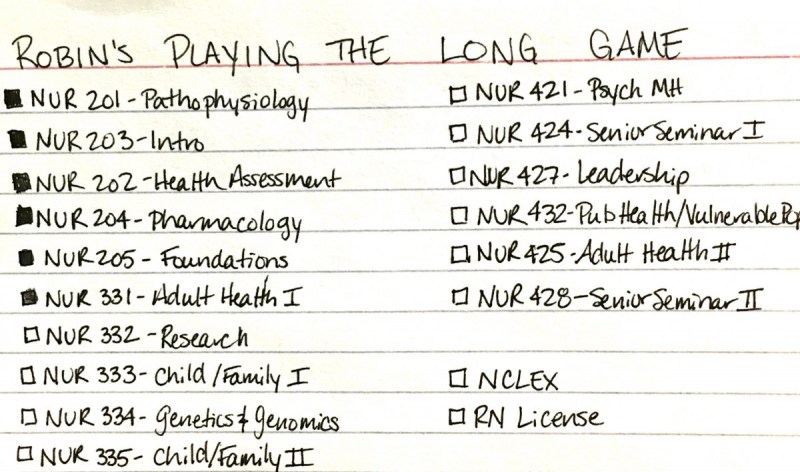 ROBIN'S PLAYING THE LONG GAME
NUR 201 - Pathophysiology
NUR 203 - Intro
NUR 202 - Health Assessment
NUR 204 - Pharmacology
NUR 205 - Foundations
NUR 331 - Adult Health I
NUR 332 - Research
NUR 333 - Child/Family I
NUR 334 - Genetics & Genomics
NUR 335 - Child/Family II
NUR 421 - Psych MH
NUR 424 - Senior Seminar I
NUR 427 - Leadership
NUR 432 - Pub Health/Vulnerable Pop
NUR 425 - Adult Health II
NUR 428 - Senior Seminar II
NCLEX
RN License